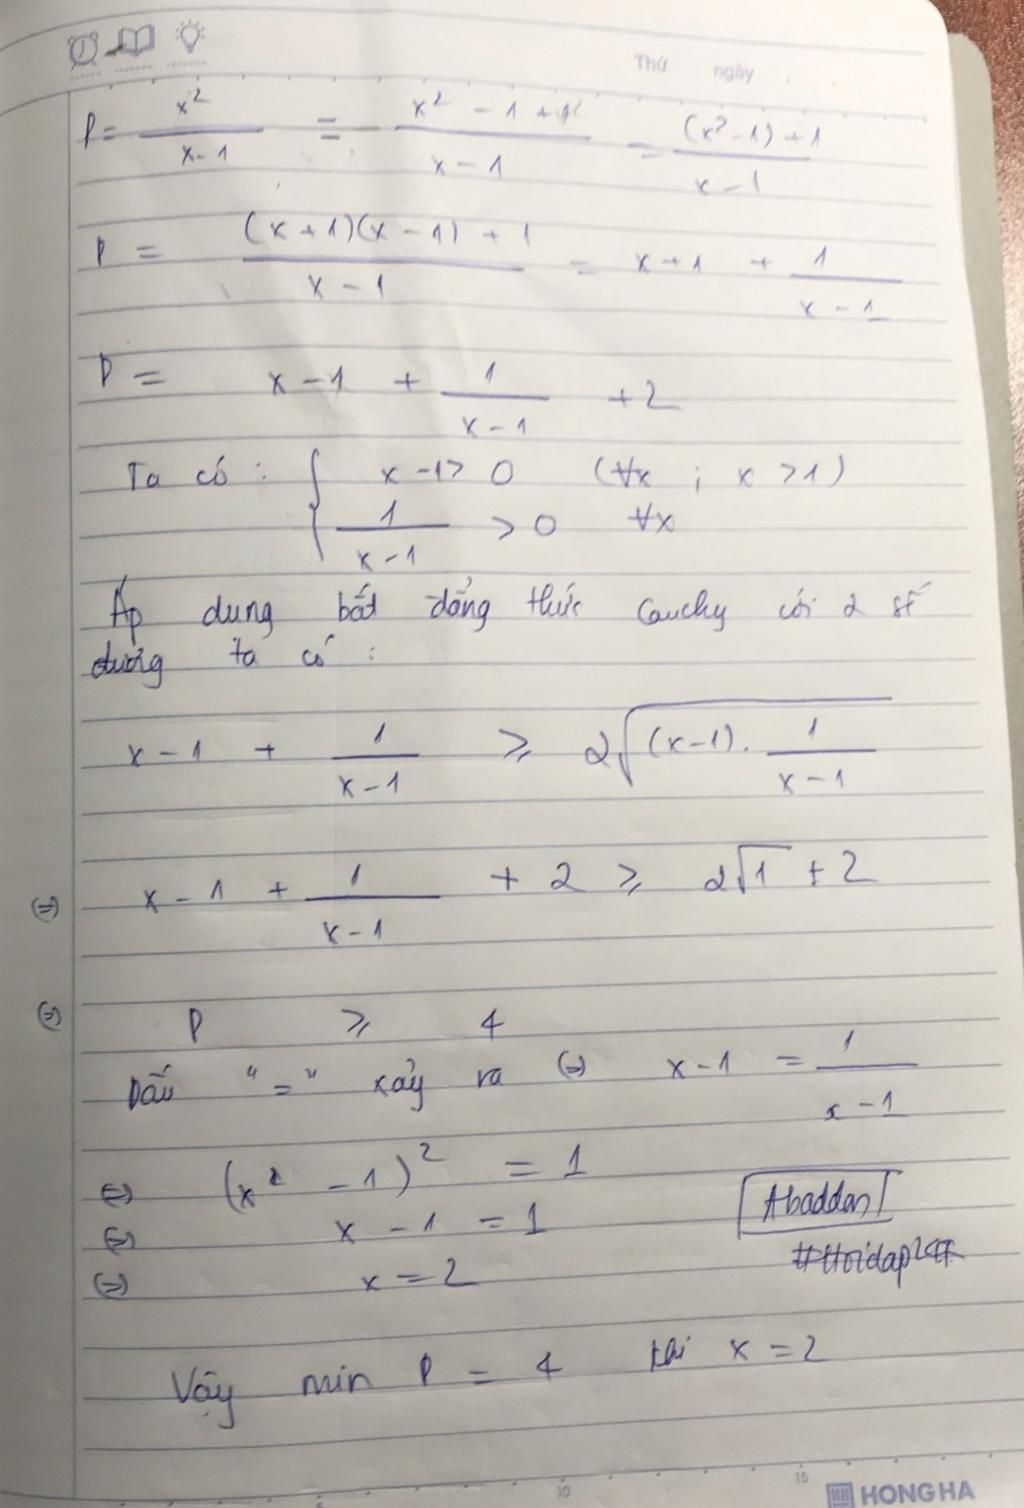 Thứ ngày
P = x²/(x-1) = (x² - 1 + 1)/(x - 1) = ((x²-1)+1)/(x-1)
P = ((x+1)(x-1) + 1)/(x-1) = x+1 + 1/(x-1)
P = x-1 + 1/(x-1) + 2
Ta có : { x-1> 0 (∀x ; x >1)
1/(x-1) > 0 ∀x
Áp dung bất đẳng thức Cauchy với 2 số
dương ta có :
x-1 + 1/(x-1) ≥ 2√((x-1). 1/(x-1))
(=) x-1 + 1/(x-1) + 2 ≥ 2√1 + 2
(=) P ≥ 4
Dấu "=" xảy ra (=) x-1 = 1/(x-1)
(=) (x² - 1)² = 1
(=) x - 1 = 1
Abaddon
(=) x = 2
#Hoidap247
Vậy min P = 4 khi x = 2
10 15
HONG HA